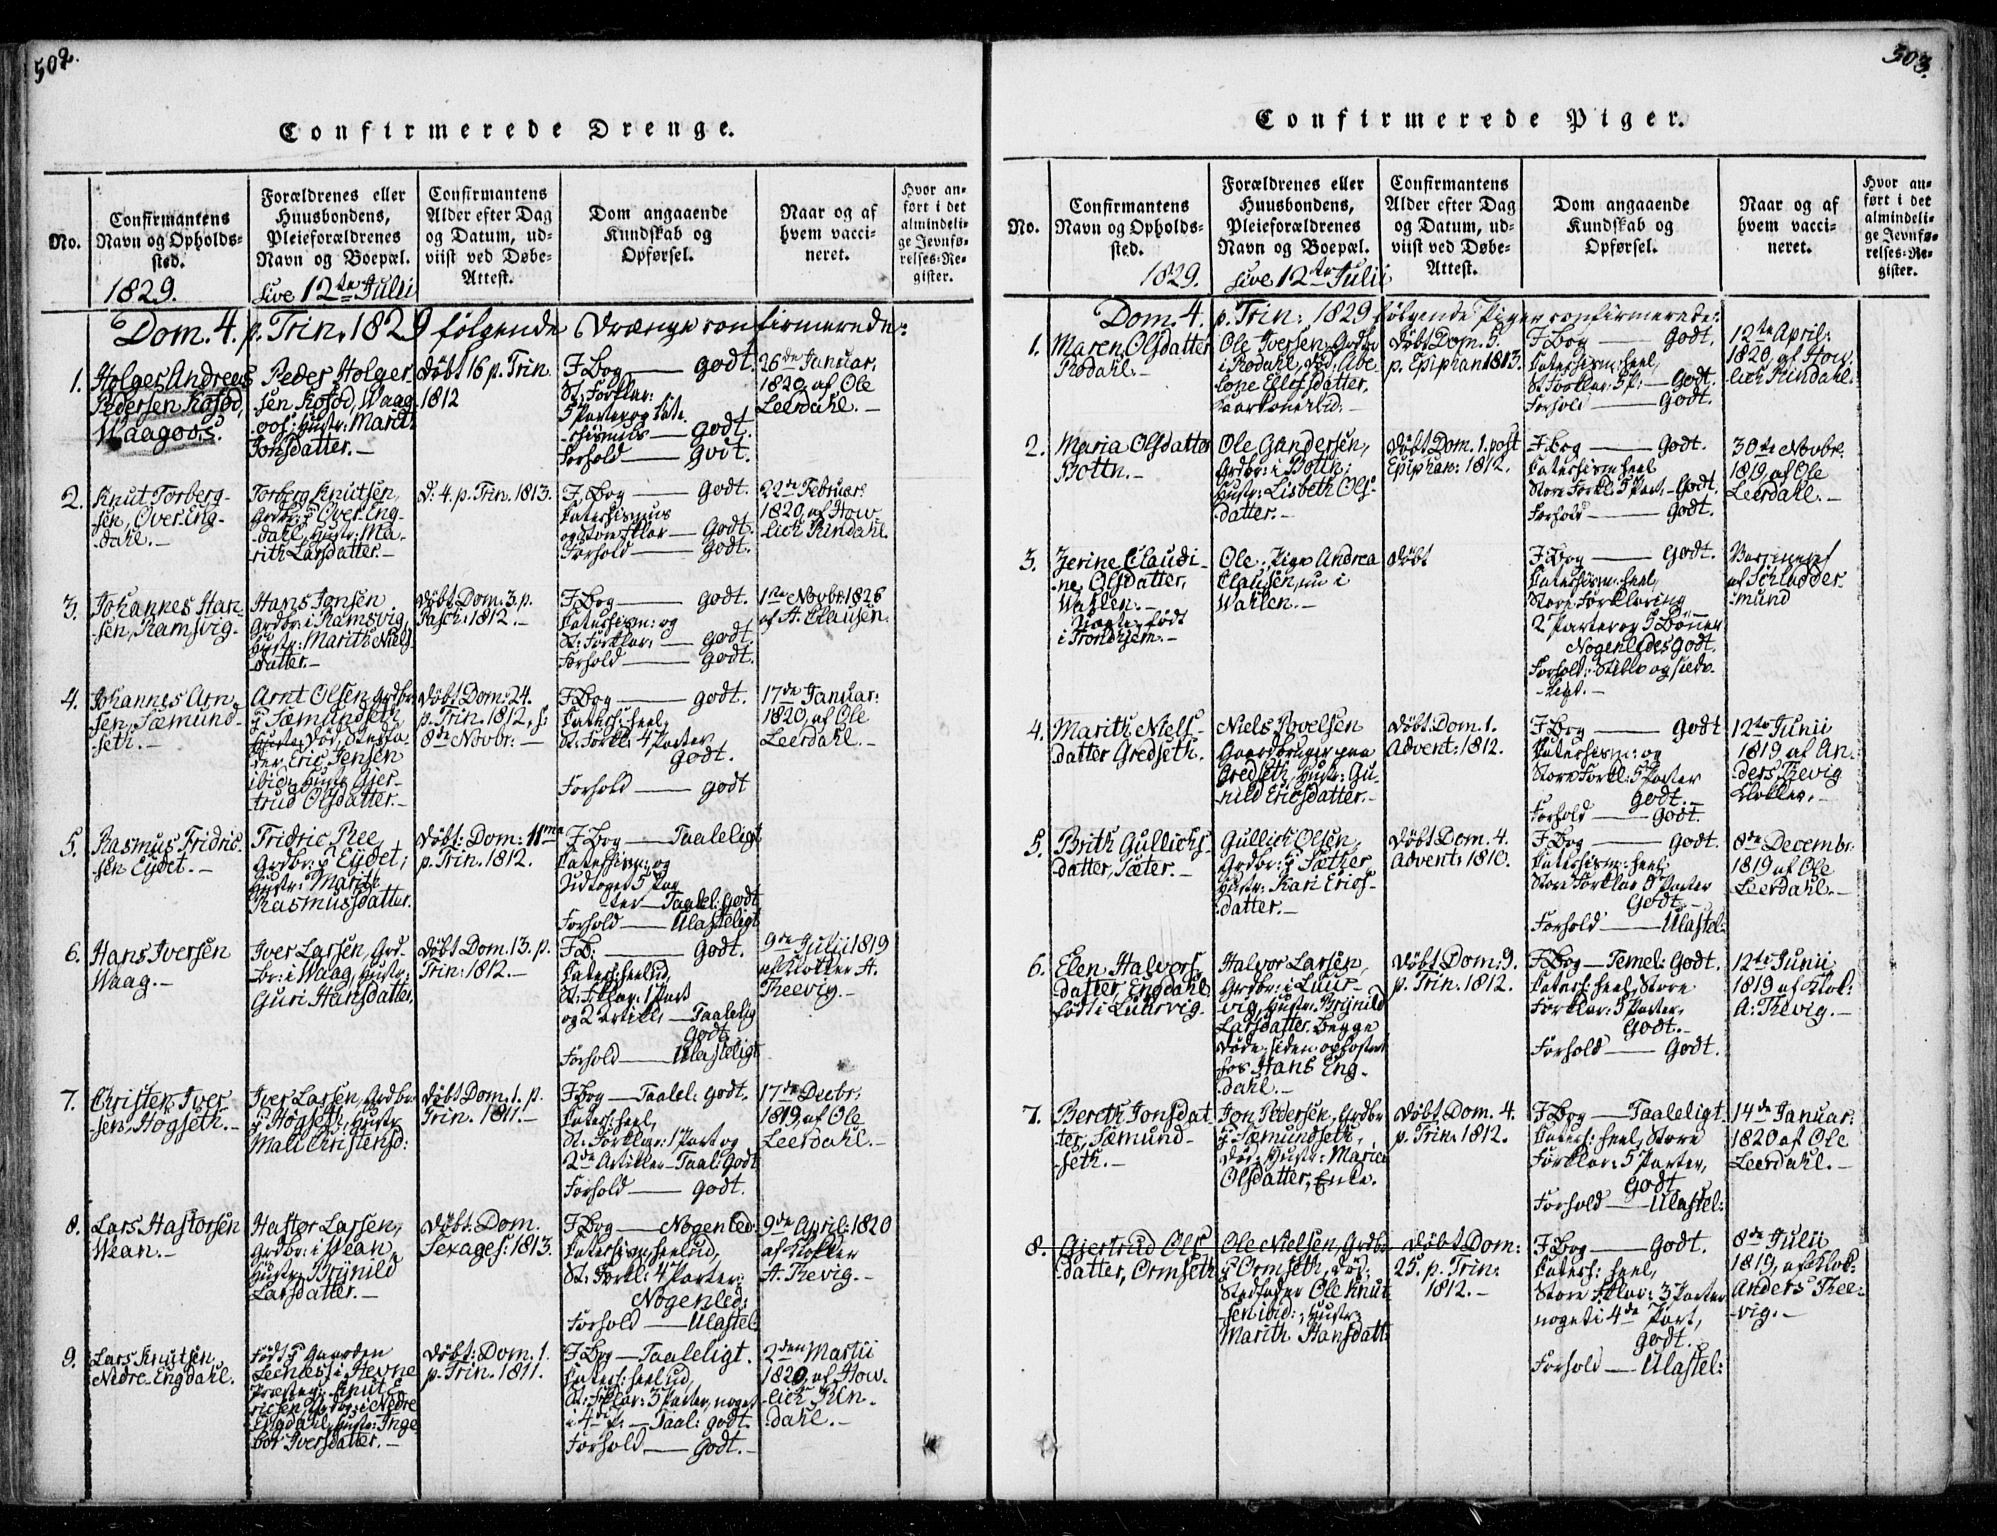 502.
Confirmerede Drenge.
No.
Confirmantens
Navn og Opholds-
sted.
1829.
Forældrenes eller
Huusbondens,
Pleieforældrenes
Navn og Boepæl.
sive 12te Julii
Confirmantens
Alder efter Dag
og Datum, ud-
viist ved Døbe-
Attest.
Dom angaaende
Kundskab og
Opførsel.
Naar og af
hvem vacci-
neret.
Hvor an-
ført i det
almindeli-
ge Jevnfø-
relses-Re-
gister.
Dom. 4. p. Trin. 1829 følgende Drænge confirmerede:
1.
Holger Andreas
Pedersen Kofod,
Waagoos.
Peder Holger-
sen Kofod, Waag-
oos: Hustr: Marit
Jonsdatter.-
Døbt 16 p. Trin.
1812
F. Bog - godt.
St. Forklar:
5 Parter og Cate-
-chismus - godt.
Forhold - godt.
26de Januar.
1820, af Ole
Leerdahl.-
2.
Knut Torberg-
sen, Over Eng-
dahl.-
Torberg Knutsen,
Grdbr: p Over Eng-
dahl, Hustr: Ma-
rith Larsdatter.-
D: 4. p. Trin. 1813.
F. Bog - Godt.
Catechismus
og Store Fklar - Godt.
Forhold - Godt.
22de Februar:
1820, af How-
lich Rindahl.
3.
Johannes Han-
sen, Ramsvig.
Hans Jonsen
Grdbr: i Ramsvig
Hustr: Marith Niels-
datter.-
Døbt Dom: 3. p.
Pasch: 1812.-
F. Bog - godt.
Catechism: og
St: Forklar: - godt.
Forhold - Godt.
1te Novbr 1826
af A. Clausen.
4.
Johannes Arn-
sen, Sæmund-
seth.-
Arnt Olsen, Grdbr:
p Sæmundseth
død,
Eric Jensen
ibid: Hustr Gjer-
trud Olsdatter.-
Døbt Dom: 24.
p. Trin. 1812, s:
8de Novbr: -
F. Bog - godt.
Catech: heel,
St: Forkl: 4 Parter
Godt.
Forhold - godt
17de Januar:
1820, af Ole
Leerdahl.-
5.
Rasmus Fridric-
sen Eydet.-
Fridric Ree,
Grdbr: p Eydet;
Hustr: Marith
Rasmusdatter.
Døbt: Dom: 11ma
p. Trin. 1812.
F. Bog - Taaleligt
Catechism: og
Udtoget 5 Par-
ter - Taalel: Godt
Forhold - Ulasteligt
6.
Hans Iversen
Waag.-
Iver Larsen, Grd-
br: i Waag, Hustr:
Guri Hansdatter,
Døbt Dom. 13. p.
Trin: 1812.-
F. B: - Godt.
Catech: heel ud,
St: Fklar: 1 Part
og 2 Artikl, - Taalelig
Godt.
Forhold - Ulasteligt
9de Julii 1819
af Klokker A.
Reevig.-
7.
Christen Iver-
sen, Høgseth.-
Iver Larsen, Grdbr:
p Høgseth, Hustr:
Mali Christensd:
Døbt Dom: 1. p.
Trin. 1811.-
F. Bog - Taalel: Godt.
Catech: heel,
St: Forklar: 1 Part og
2de Artikler - Taal: Godt
Forhold - godt.
17de Decbr:
1819, af Ole
Leerdahl.-
8.
Lars Hastorsen
Wean.-
Hastor Larsen,
Grdbr: i Wean,
Hustr: Brynild
Larsdatter.-
Døbt: Dom.
Sexages: 1813.
F. Bog - Nogenled:
Catechism: heel ud,
St: Forkl: 4 Parter:
Nogenled:
Forhold - Ulastel:
9de April: 1820
af Klokker
A. Revig.-
9.
Lars Knutsen
Nedre-Engdahl.
Født p Gaarden
Leenæs i Hevne
Præstegj: Knut E-
ricsen Grdbr: i Nedre
Engdahl, Hustr: Inge-
bor Iversdatter.-
Døbt: Dom: 1.
p. Trin. 1811.
F. Bog - Taaleligt.
Catech: heel ud,
St: Fklar: 3 Parter, noget
i 4de P: - Taal: godt.
Forhold - Godt.-
2den Martii
1820, af How-
-lich Rin-
dahl.-
503.
Confirmerede Piger.
No.
Confirmantens
Navn og Opholds-
sted.
1829.
Forældrenes eller
Huusbondens,
Pleieforældrenes
Navn og Boepæl.
sive 12te Julii
Confirmantens
Alder efter Dag
og Datum, ud-
viist ved Døbe-
Attest.
Dom angaaende
Kundskab og
Opførsel.
Naar og af
hvem vacci-
neret.
Hvor an-
ført i det
almindeli-
ge Jevnfø-
relses-Re-
gister.
Dom. 4. p. Trin: 1829 følgende Piger confirmerede:
1.
Maren Olsdatter
Rodahl.-
Ole Iversen, Grdbr
i Rodahl, og Abe-
lone Elefsdatter,
Døbt Dom. 5.
p. Epiphan 1813.
F. Bog - Godt.
Catechism: heel,
St. Forklar: 5 P: - Godt.
Forhold - Godt.
12te April:
1820, af How-
lich Rindahl.
2.
Maria Olsdatter
Bottn.-
Ole Gundersen,
Grdbr: i Bottn:
Hustr: Lisbeth Ols-
datter.-
Døbt Dom. 1. post
Epiphan: 1812.
F. Bog - Godt.
Catechism heel
Store Forkl: 5 Part. - Godt.
Forhold - Godt.
30te Novbr.
1819, af Ole
Leerdahl.-
3.
Zerine Claudi-
ne, Olsdatter,
Wahlen.-
Uægte, født
i Trondhjem.-
Ole . Pige Andrea
Clausen, nu i
Wahlen.-
Døbt
F. Bog - Godt.
Catechism: heel,
Store Forklaring
2 Parter og 5 Bønner
Nogenledes Godt.
Forhold: Stille og sæde-
-ligt.-
Vaccineret
af Schladder-
mund
4.
Marith Niels-
datter Gredseth.
Niels Povelsen
Gaardbruger paa
Gredseth, Hustr: Gu-
nild Ericsdatter.-
Døbt: Dom. 1.
Advent: 1812.
F. Bog - Godt
Catechism: og
Store Forkl: 5 Parter
Godt.-
Forhold - Godt.
12te Junii
1819 af An-
ders Revig
Klokker.-
5.
Brith Gullichs-
datter, Sæter.-
Gullich Olsen,
Grdbr: p Sæther
Hustr: Kari Erics-
datter.-
Døbt Dom. 4.
Advent: 1810.
F. Bog - Godt.
Catechism: heel,
Store Forklar 5 Parter
Godt.-
Forhold - Ulastel:
8de Decembr:
1819 af Ole
Leerdahl.-
6.
Elen Halvors-
datter Engdahl
født i Luhrvig.
Halvor Larsen,
Grdbr: i Luur-
vig, Hustr: Brynild
Larsdatter, begge
døde, siden opfostret
hos Hans Eng-
dahl.-
Døbt Dom: 9.
p. Trin. 1812.
F. Bog - Temel: Godt.
Catech: heel, Store
Forklar: 5 Parter,
Godt.-
Forhold - Godt.
12te Junii
1819 af Klok:
A: Revig.-
7.
Bereth Jonsdat-
ter, Sæmund-
seth.-
Jon Pedersen, Grdbr
p Sæmundseth,
død; Hustr: Maria
Olsdatter, Enke.
Døbt Dom. 4.
p. Trin. 1812.
F. Bog - Taaleligt.
Catech: heel, Store
Forklar: 5 Parter,
Godt
Forhold - Ulastel:
14de Januar:
1820 af Ole
Leerdahl.-
8.
Gjertrud Ols-
datter, Ormseth
Ole Nielsen, Grdbr
p Ormseth, død;
Stedfader Ole Knut-
sen ibid:, Hustr:
Marith Hansdatt:
Døbt Dom:
25. p. Trin:
1812.-
F. Bog - Godt.
Catech: heel,
Store Fklar: 3 Parter
noget i 4de Part,
Godt.
Forhold - Ulastel:
8de Julii
1819, af Klok-
Anders Ree-
-vig.-